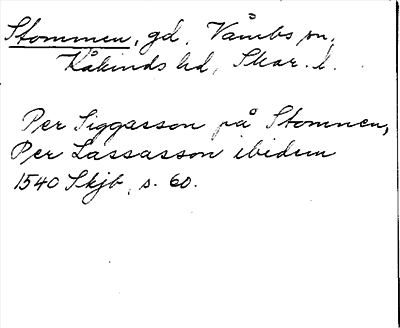 Stommen, gd, Våmbs sn,
Kåkinds hd, Skar. l.
Per Siggasson på Stomnen,
Per Lassasson ibidem
1540 Skjb, s. 60.